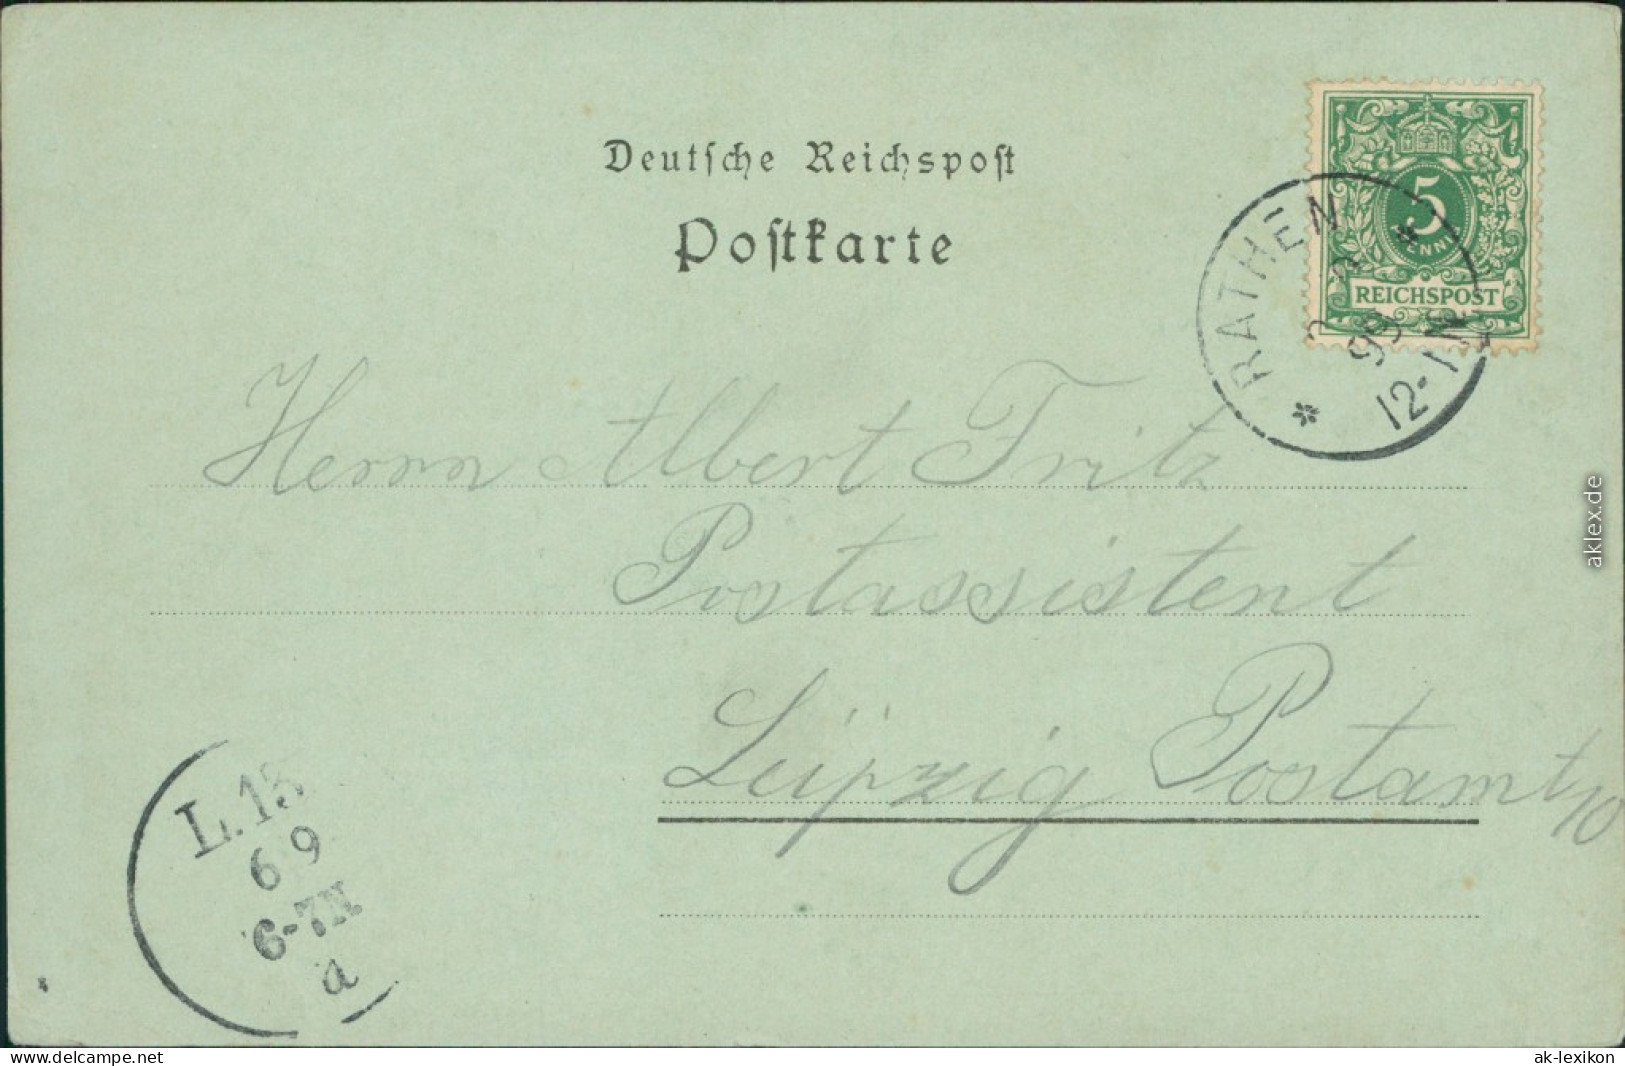 Deutsche Reichspost
Postkarte
5
PFENNIG
REICHSPOST
* RATHEN *
99
12-1N
Herrn Albert Fritz
Postassistent
Leipzig Postamt 10
L. 13
6 9
6-7N
a
aklex.de
www.delcampe.net
ak-lexikon